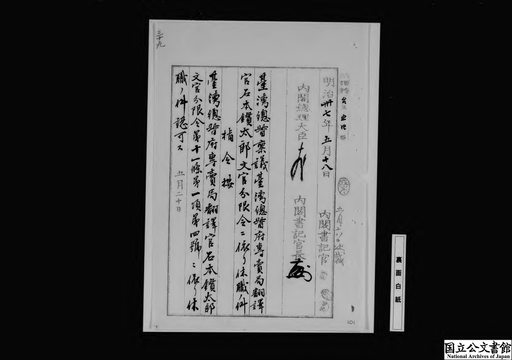 明治卅七年五月十八日
内閣書記官
内閣総理大臣
内閣書記官長
臺灣總督稟議臺灣總督府專賣局翻譯
官石本鑽太郎文官分限令ニ依リ休職ノ件
指令按
臺灣總督府專賣局翻譯官石本鑽太郎
文官分限令第十一條第一項第四號ニ依リ休
職ノ件認可ス
五月二十日
裏面白紙
101
国立公文書館
National Archives of Japan